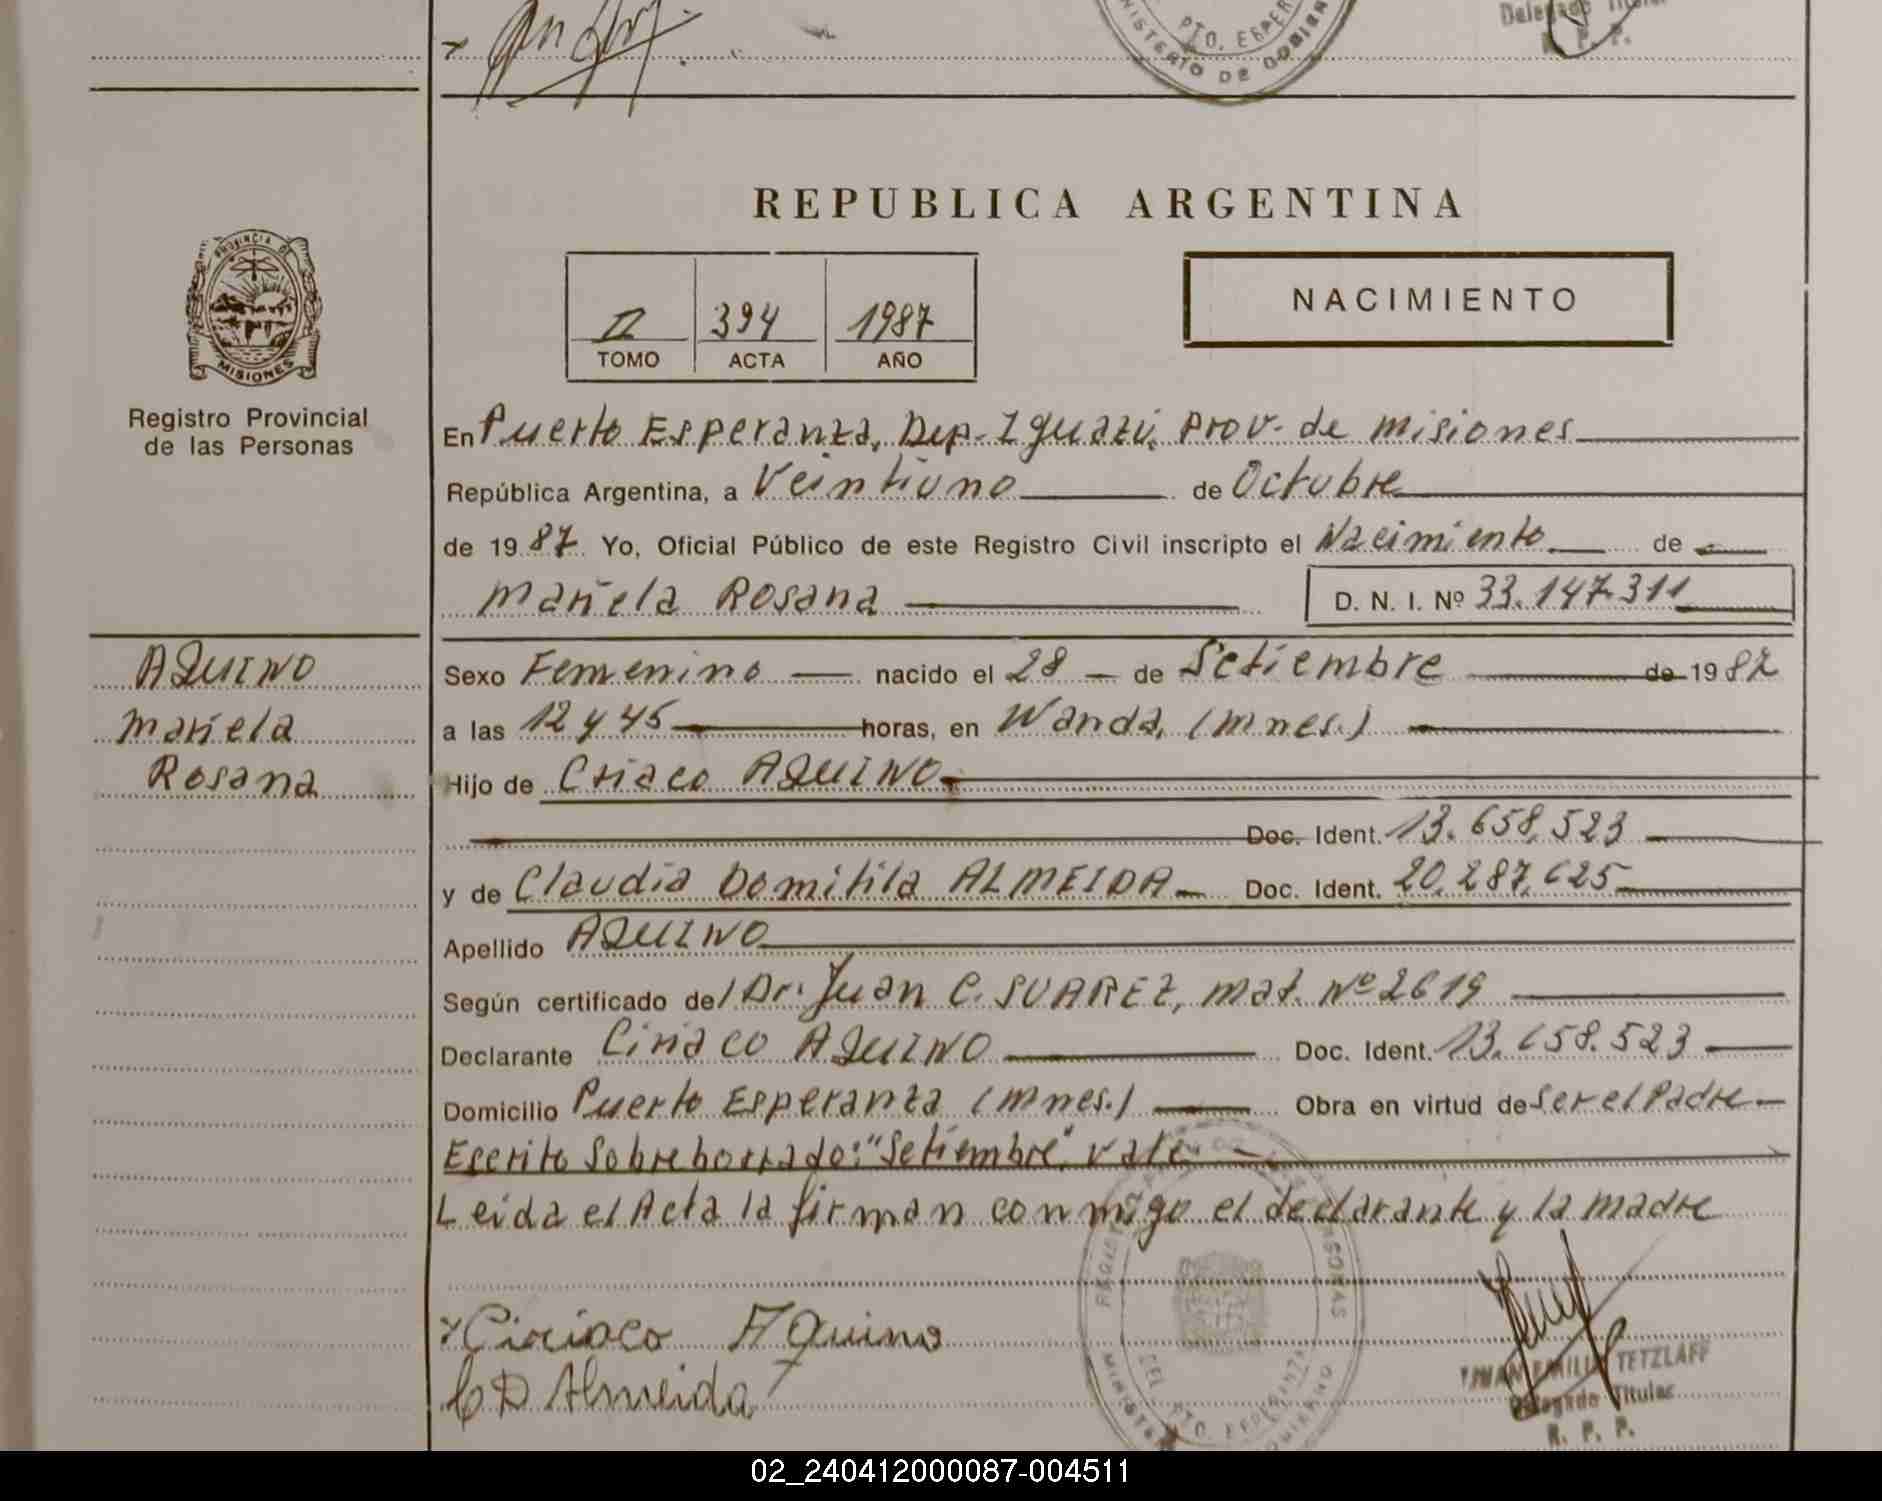 PTO. ESPER
MINISTERIO DE GOBIER
Delegado Titular
R. P. P.
REPUBLICA ARGENTINA
PROVINCIA DE
MISIONES
Registro Provincial
de las Personas
II 394 1987
TOMO ACTA AÑO
NACIMIENTO
En Puerto Esperanza, Dep. Iguazú, Prov. de Misiones
República Argentina, a Veintiuno de Octubre
de 1987 Yo, Oficial Público de este Registro Civil inscripto el Nacimiento de
Mariela Rosana D. N. I. Nº 33.147.311
AQUINO
Mariela
Rosana
Sexo Femenino nacido el 28 de Setiembre de 1987
a las 12 y 45 horas, en Wanda, (Mnes.)
Hijo de Criaco AQUINO
Doc. Ident. 13.658.523
y de Claudia Domitila ALMEIDA Doc. Ident. 20.287.625
Apellido AQUINO
Según certificado del Dr. Juan C. SUAREZ, mat. Nº 2619
Declarante Ciriaco AQUINO Doc. Ident. 13.658.523
Domicilio Puerto Esperanza (Mnes.) Obra en virtud de ser el Padre
Escrito Sobreborrado: "Setiembre" vale
Leida el Acta la firman conmigo el declarante y la madre
Ciriaco Aquino
C D Almeida
JUAN EMILIO TETZLAFF
Delegado Titular
R. P. P.
02_240412000087-004511